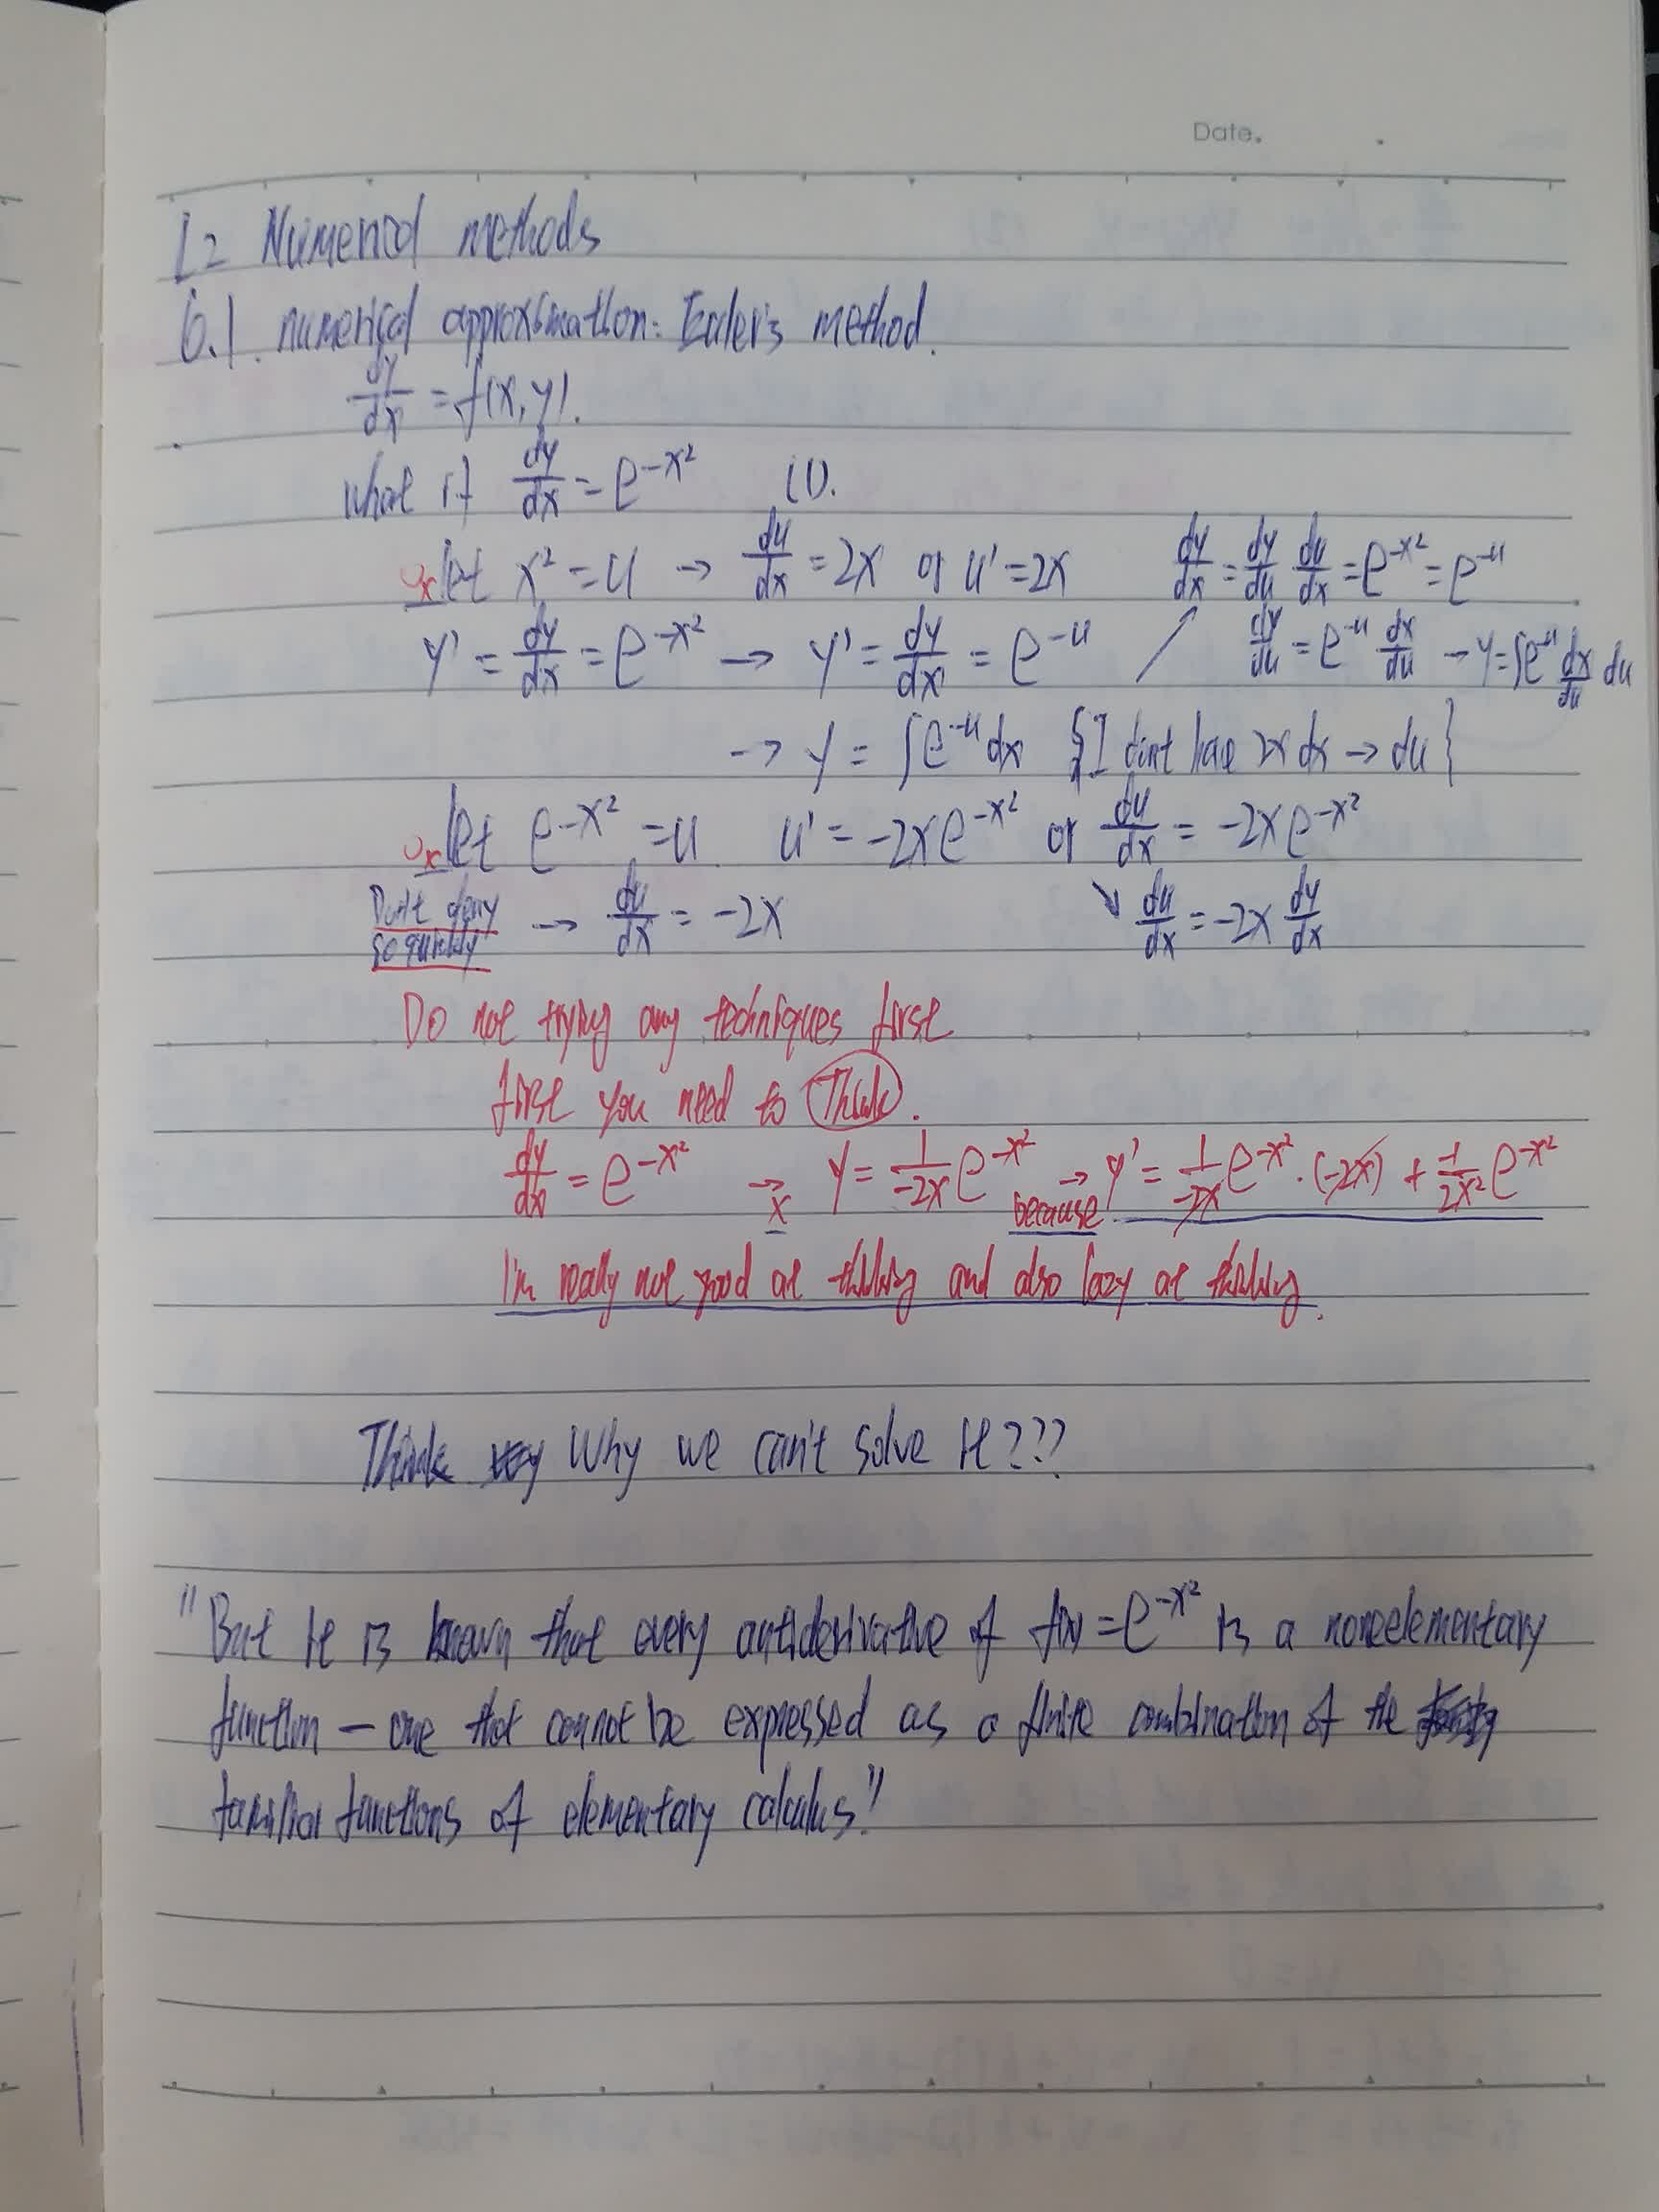 Date.
L2 Numerical methods
6.1. numerical approximation: Euler's method.
dy/dx = f(x,y).
What if dy/dx = e^{-x²} (1).
let x² = u → du/dx = 2x or u' = 2x dy/dx = dy/du du/dx = e^{-x²} = e^{-u}
y' = dy/dx = e^{-x²} → y' = dy/dx = e^{-u} ↗ dy/du = e^{-u} dx/du → y = ∫e^{-u} dx/du du
→ y = ∫e^{-u} dx {I dint have 2x dx → du}
let e^{-x²} = u. u' = -2xe^{-x²} or du/dx = -2xe^{-x²}
Don't deny so quickly → du/dx = -2x ↘ du/dx = -2x dy/dx
Do not trying any techniques first
first you need to Think.
dy/dx = e^{-x²} → x y = 1/-2x e^{-x²} → because y' = 1/-2x e^{-x²} · (-2x) + -1/2x² e^{-x²}
I'm really not good at thinking and also lazy at thinking.
Think why Why we can't solve it???
"But it is known that every antiderivative of f(x) = e^{-x²} is a nonelementary
function — one that cannot be expressed as a finite combination of the
familiar functions of elementary calculus."